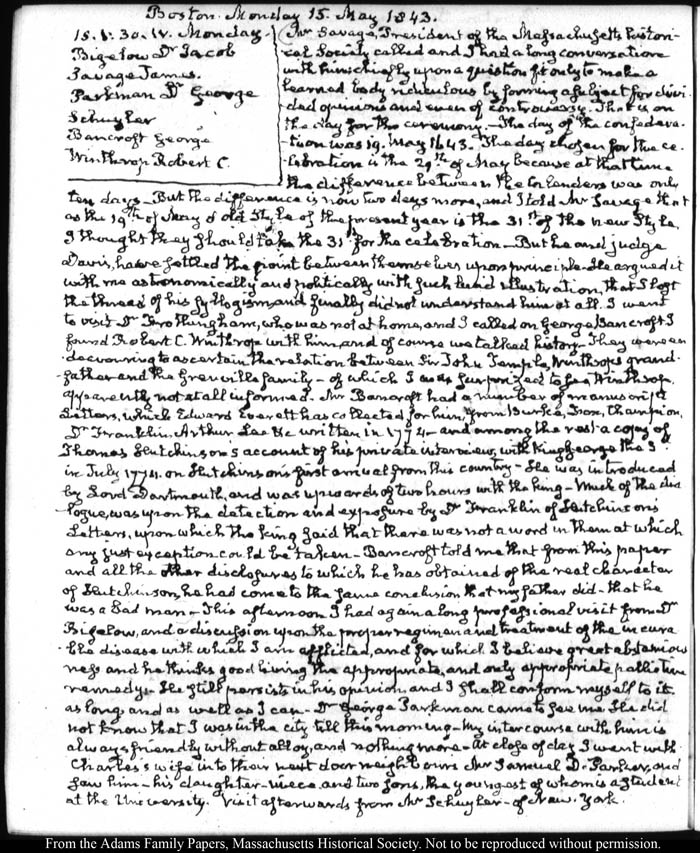 Boston. Monday 15. May 1843.
15. V: 30. IV. Monday
Bigelow Dr Jacob
Savage James.
Parkman Dr George
Schuyler
Bancroft George
Winthrop Robert C.
Mr Savage, President of the Massachusetts histori-
cal Society called and I had a long conversation
with him chiefly upon a question fit only to make a
learned body ridiculous by forming a subject for divi-
ded opinions and even of controversy. That is on
the day for the ceremony.— The day of the confedera-
tion was 19. May 1643. The day chosen for the ce-
lebration is the 29th of May because at that time
the difference between the Calendars was only
ten days— But the difference is now two days more, and I told Mr Savage that
as the 19th of May of old Style of the present year is the 31st of the new Style,
I thought they should take the 31st for the celebration— But he and judge
Davis, have settled the point between themselves upon principle. He argued it
with me astronomically and politically with such lucid illustration, that I lost
the thread of his syllogism and finally did not understand him at all. I went
to visit Dr Frothingham, who was not at home, and I called on George Bancroft I
found Robert C. Winthrop with him, and of course we talked history— They were en
deavouring to ascertain the relation between Sir John Temple, Winthrop's grand-
father and the Grenville family— of which I was surprized to see Winthrop
apparently not at all informed. Mr Bancroft had a number of manuscript
Letters, which Edward Everett has collected for him, from Burke, Fox,
Dr Franklin, Arthur Lee &c written in 1774— and among the rest a copy of
Thomas Hutchinson's account of his private interview, with King George the 3d
in July 1774. on Hutchinson's first arrival from this country— He was introduced
by Lord Dartmouth, and was upwards of two hours with the king— Much of the dia
logue, was upon the detection and exposure by Dr Franklin of Hutchinson's
Letters, upon which the king said that there was not a word in them at which
any just exception could be taken— Bancroft told me that from this paper
and all the other disclosures to which he has obtained of the real character
of Hutchinson, he had come to the same conclusion that my father did— that he
was a bad man— This afternoon I had again a long professional visit from Dr
Bigelow, and a discussion upon the proper regimen and treatment of the incura
ble disease with which I am afflicted, and for which I believe great abstemious
ness and he thinks good living the appropriate, and only appropriate palliative
remedy— He still persists in his opinion, and I shall conform myself to it
as long, and as well as I can— Dr George Parkman came to see me He did
not know that I was in the city till this morning— My intercourse with him is
always friendly without alloy, and nothing more— At close of day I went with
Charles's wife into their next door neighbours Mr Samuel D. Parker, and
saw him— his daughter— niece, and two sons, the youngest of whom is a student
at the University. Visit afterwards from Mr Schuyler— of New-York.
From the Adams Family Papers, Massachusetts Historical Society. Not to be reproduced without permission.